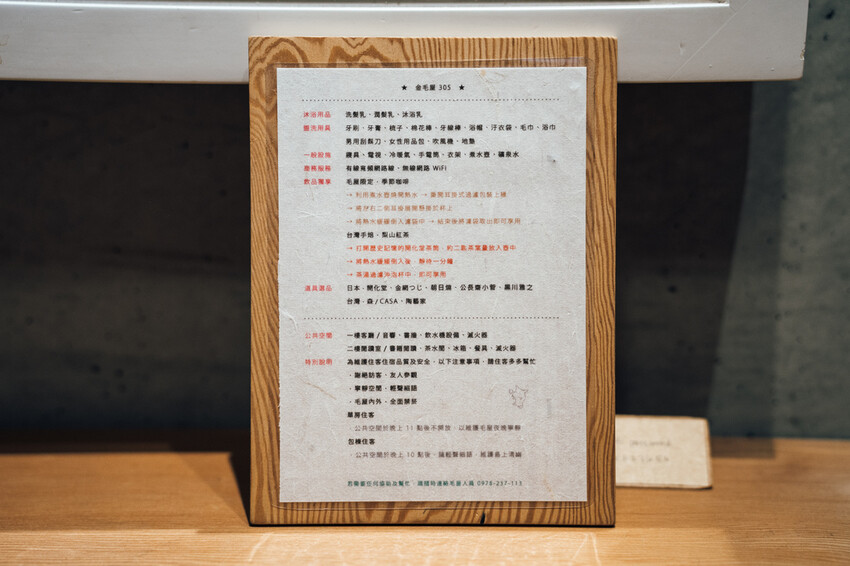 ★ 金毛屋 305 ★
沐浴用品 洗髮乳、潤髮乳、沐浴乳
盥洗用具 牙刷、牙膏、梳子、棉花棒、牙線棒、浴帽、汙衣袋、毛巾、浴巾
男用刮鬍刀、女性用品包、吹風機、地墊
一般設施 寢具、電視、冷暖氣、手電筒、衣架、煮水壺、礦泉水
商務服務 有線寬頻網路線、無線網路 WiFi
飲品獨享 毛屋限定．季節咖啡
→ 利用煮水壺燒開熱水 → 撕開耳掛式過濾包裝上緣
→ 將牙右二側耳掛撕開懸掛於杯上
→ 將熱水緩緩倒入濾袋中 → 結束後將濾袋取出即可享用
台灣手焙．梨山紅茶
→ 打開歷史記憶的開化堂茶筒，約二匙茶葉量放入壺中
→ 將熱水緩緩倒入後，靜待一分鐘
→ 茶湯過濾沖泡杯中，即可享用
道具選品 日本．開化堂、金網つじ、朝日燒、公長齋小菅、黑川雅之
台灣．森 / CASA、陶藝家
公共空間 一樓客廳 / 音響、書牆、飲水機設備、滅火器
二樓閱讀室 / 書籍閱讀、茶水間、冰箱、餐具、滅火器
特別說明 為維護住客住宿品質及安全，以下注意事項，請住客多多幫忙
．謝絕訪客、友人參觀
．寧靜空間，輕聲細語
．毛屋內外，全面禁菸
單房住客
．公共空間於晚上 11 點後不開放，以維護毛屋夜晚寧靜
包棟住客
．公共空間於晚上 10 點後，請輕聲細語，維護巷上清幽
若需要任何協助及幫忙，請隨時連絡毛屋人員 0978-237-111